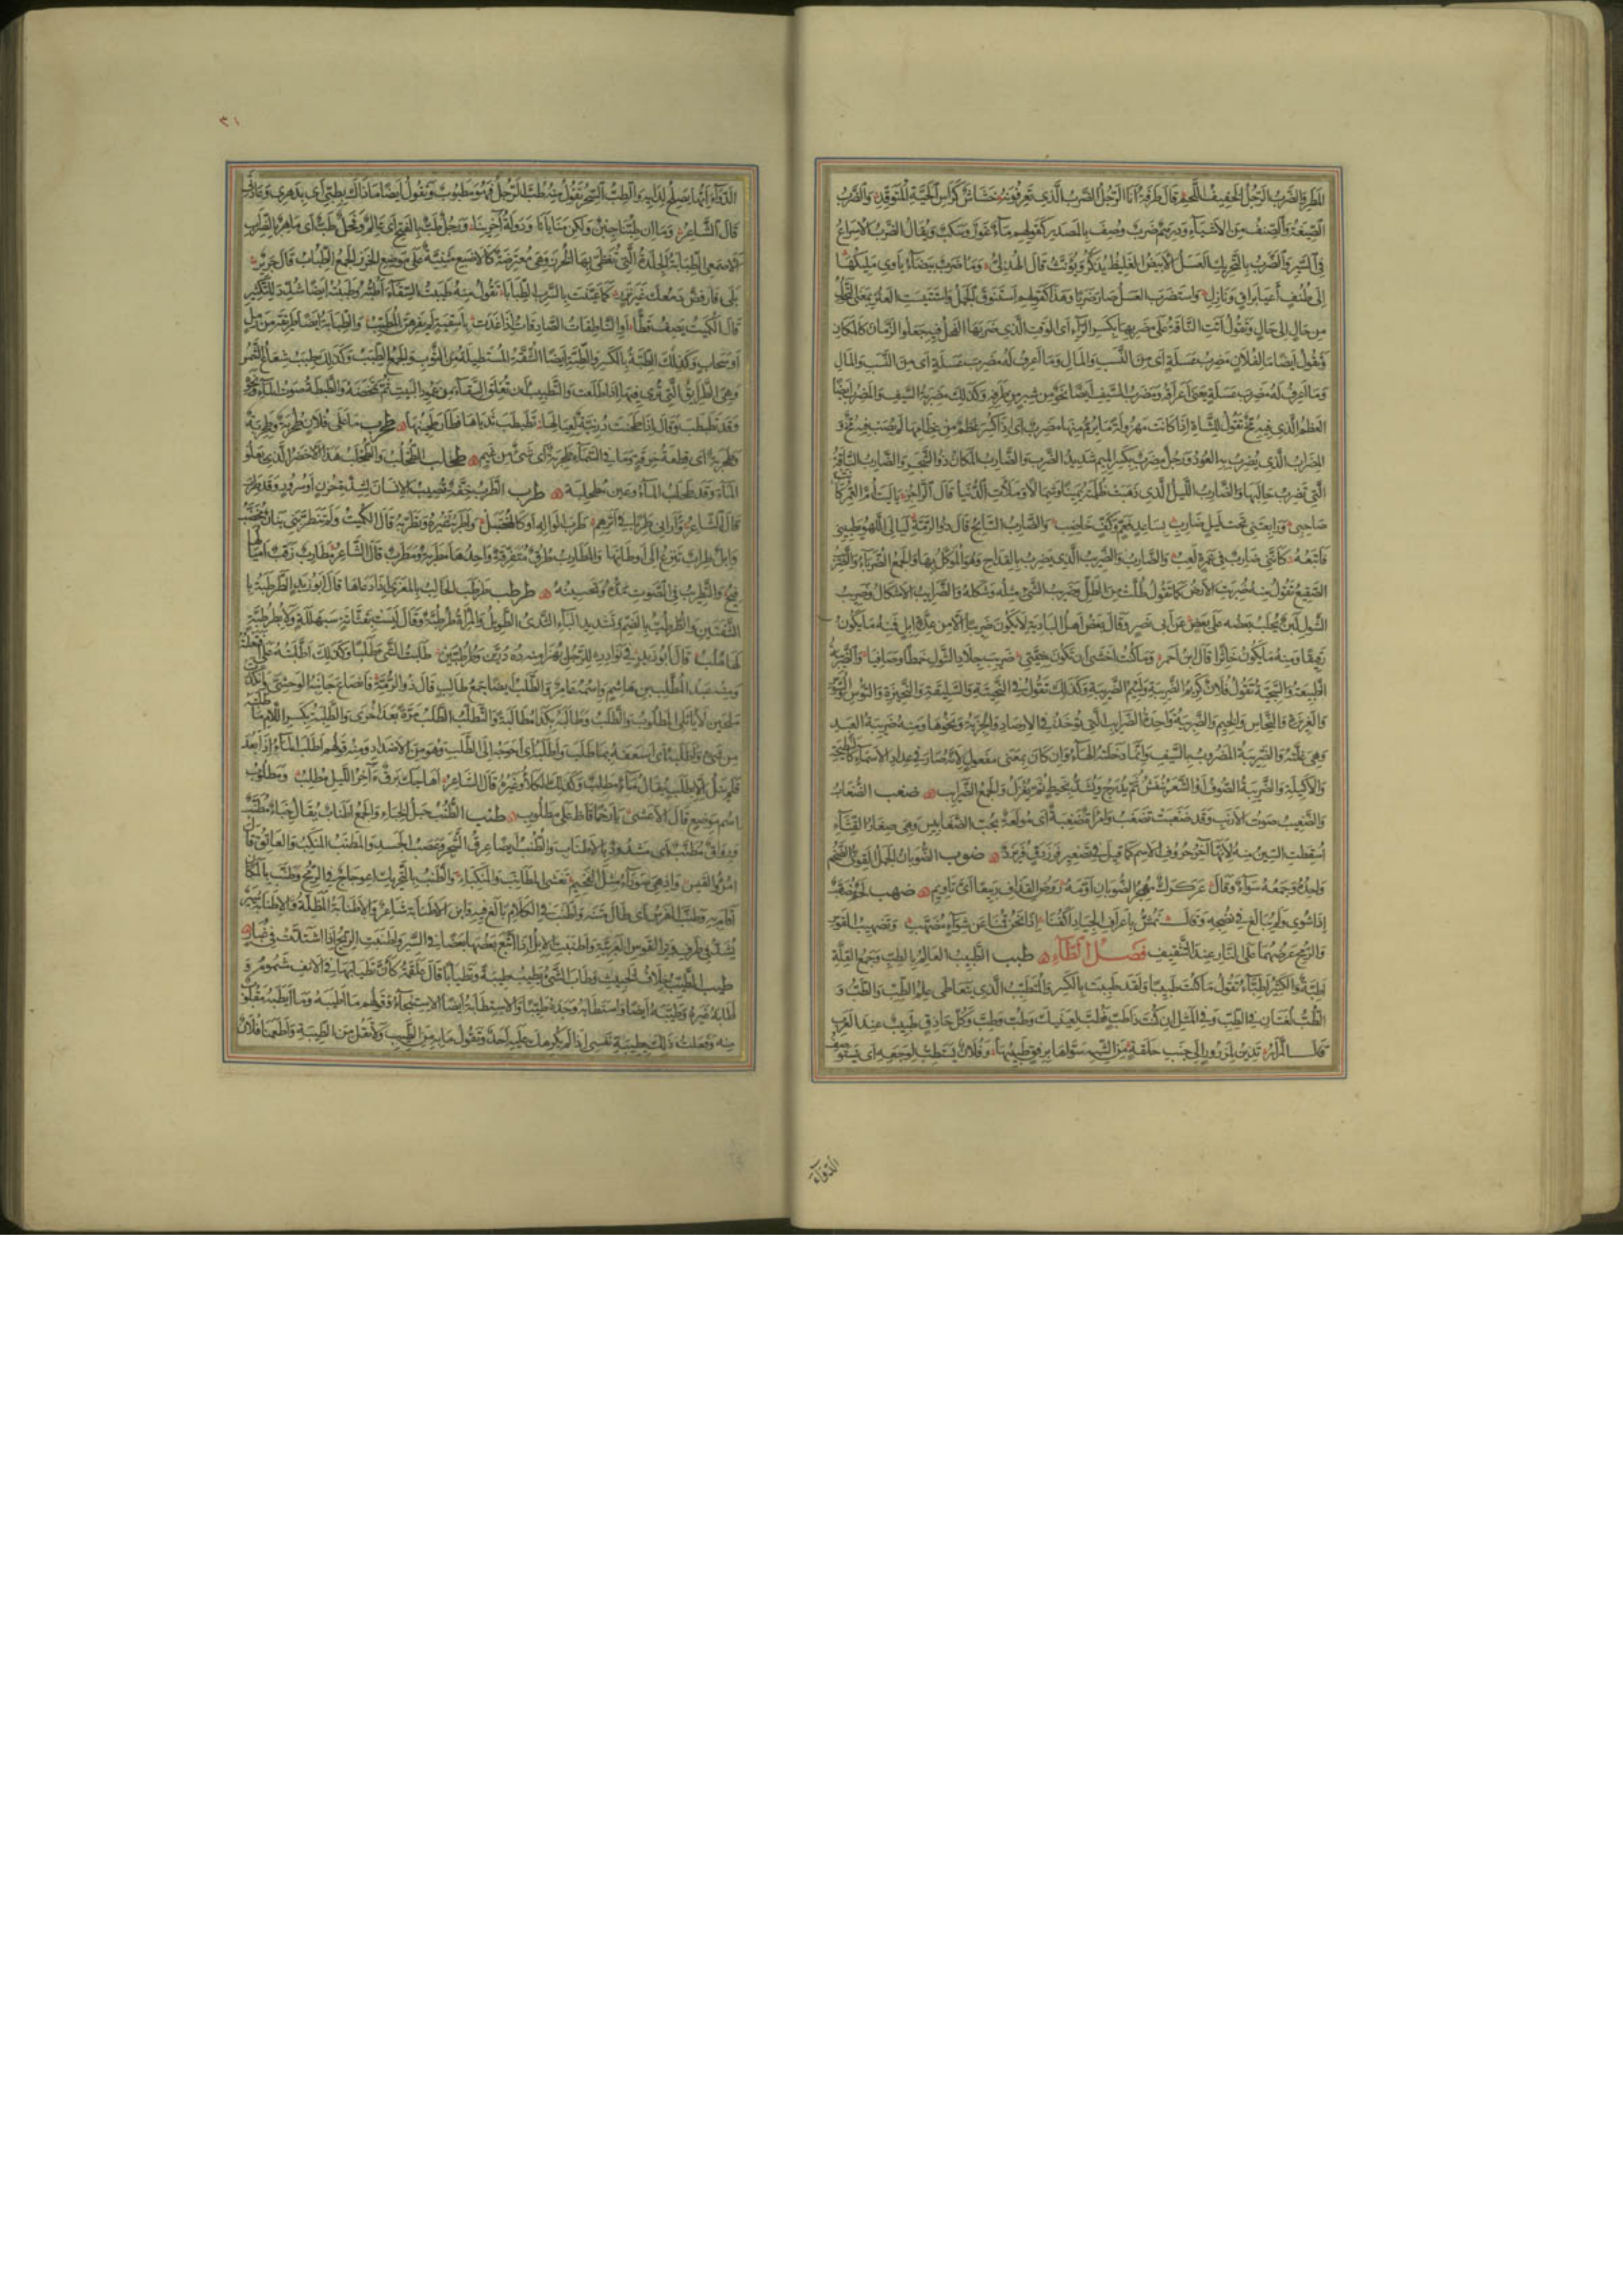 المطر والضرب الرجل الخفيف اللحم قال طرفة انا الرجل الضرب الذي تعرفونه خشاش كرأس الحية المتوقد والضرب
الصيغة والصنف من الاشياء ودرهم ضرب وصف بالمصدر كقولهم ماء غور وسكب ويقال الضرب الاسراع
في السير والضرب بالتحريك العسل الابيض الغليظ يذكر ويؤنث قال الهذلي وما ضرب بيضاء ياوي مليكها
الى طنف اعيا براق ونازل واستضرب العسل صار ضربا وهذا كقولهم استنوق الجمل واستتيست العنز بمعنى التحول
من حال الى حال وتقول اتت الناقة على مضربها بكسر الراء اي الوقت الذي ضربها الفحل فيه جعلوا الزمان كالمكان
وتقول ايضا ما لفلان مضرب عسلة اي من النسب والمال وما اعرف له مضرب عسلة اي من النسب والمال
وما اعرف له مضرب عسلة يعني اعراقه ومضرب السيف ايضا نحو من شبر من طرفه وكذلك مضربة السيف والمضرب ايضا
العظم الذي فيه مخ تقول للشاة اذا كانت مهزولة ما يرم منها مضرب اي اذا كسر عظم من عظامها لم يصب فيه مخ و
المضراب الذي يضرب به العود ورجل مضرب بكسر الميم شديد الضرب والضارب المكان ذو الشجر والضارب الناقة
التي تضرب حالبها والضارب الليل الذي ذهبت ظلمته يمينا وشمالا وملأت الدنيا قال الراجز يا ليت ام الغمر كانت
صاحبي ورابعتني تحت ليل ضارب بساعد فعم وكف خاضب والضارب السابح قال ذو الرمة ليالي اللهو يطبيني
فاتبعه كانني ضارب في غمرة لعب والضارب والضريب الذي يضرب بالقداح وهو الموكل بها والجمع الضرباء والضريب
الصقيع تقول منه ضربت الارض كما تقول طلت من الطل وضريب الشيء مثله وشكله والضرايب الاشكال وضريب
الشول لبن يحلب بعضه على بعض عن ابي نصر وقال بعض اهل البادية لا يكون ضريبا الا من عدة ابل فمنه ما يكون
رقيقا ومنه ما يكون خاثرا قال ابن احمر وما كنت اخشى ان تكون منيتي ضريب جلاد الشول خمطا وصافيا والضريبة
الطبيعة والسجية تقول فلان كريم الضريبة ولئيم الضريبة وكذلك تقول في النحيتة والسليقة والنحيزة والتوس والسوس
والغريزة والنحاس والخيم والضريبة واحدة الضرايب التي تؤخذ في الارصاد والجزية ونحوها ومنه ضريبة العبد
وهي غلته والضريبة المضروب بالسيف وانما دخلته الهاء وان كان بمعنى مفعول لانه صار في عداد الاسماء كالنطيحة
والاكيلة والضريبة الصوف او الشعر ينفش ثم يدرج ويشد بخيط ثم يغزل والجمع الضرايب ضغب الضغاب
والضغيب صوت الارنب وقد ضغبت تضغب وامرأة ضغبة اي مولعة بحب الضغابيس وهي صغار القثاء
اسقطت السين منه لانها آخر حروف الاسم كما قيل في تصغير فرزدق فريزد ضوب الضوبان الجمل القوي الضخم
واحده وجمعه سواء وقال عركرك مهجر الضوبان اومه روض القذاف ربيعا اي تاويم ضهب لحم مضهب
اذا شوي ولم يبالغ في نضجه وقال نمش باعراف الجياد اكفنا اذا نحن قمنا عن شواء مضهب وتضهيب القوس
والرمح عرضهما على النار عند التثقيف فصل الطاء طبب الطبيب العالم بالطب وجمع القلة
اطبة والكثير اطباء تقول ما كنت طبيبا ولقد طببت بالكسر والمتطبب الذي يتعاطى علم الطب والطب و
الطب لغتان في الطب وفي المثل ان كنت ذا طب فطب لعينيك وطب وطب وكل حاذق طبيب عند العرب
قال المرار تدين لمزرور الى جنب حلقة من الشبه سواها برفق طبيبها وفلان يستطب لوجعه اي يستوصف
الدواء
٣١
الدواء ايها يصلح لدائه والطب السحر تقول منه طب الرجل فهو مطبوب وتقول ايضا ما ذاك بطبي اي بدهري وعادتي
قال الشاعر وما ان طبنا جبن ولكن منايانا ودولة آخرينا ورجل طب بالفتح اي عالم وفحل طب اي ماهر بالضراب
الاصمعي الطبابة الجلدة التي تغطى بها الخرز وهي معترضة كالاصبع مثنية على موضع الخرز الجمع الطباب قال جرير
بلى فارفض دمعك غير نزر كما عينت بالسرب الطبابا تقول منه طببت السقاء اطبه وطببت ايضا شدد للتكثير
قال الكميت يصف قطا او الناطقات الصادقات اذا غدت باسقية لم يفرهن المطبب والطبابة ايضا طريقة من رمل
او سحاب وكذلك الطبة بالكسر والطبة ايضا الشقة المستطيلة من الثوب والجمع الطبب وكذلك طبب شعاع الشمس
وهي الطرائق التي ترى فيها اذا طلعت والتطبيب ان تعلق السقاء من عمود البيت ثم تمخضه والطبطبة صوت الماء ونحوه
وقد تطبطب وقال اذا طحنت درنية لعيالها تطبطب ثدياها فطار طحينها طحرب ما على فلان طحربة وطحربة
وطحربة اي قطعة خرقة وما في السماء طحربة اي شيء من غيم طحلب الطحلب والطحلب هذا الاخضر الذي يعلو
الماء وقد طحلب الماء وعين مطحلبة طرب الطرب خفة تصيب الانسان لشدة حزن او سرور وقد طرب
قال الشاعر واراني طربا في اثرهم طرب الواله او كالمختبل واطربه غيره وتطربه قال الكميت ولم تتطربني بنان مخضب
وابل طراب تنزع الى اوطانها والمطارب طرق متفرقة واحدها مطربة ومطرب قال الشاعر مطارب زقب اميالها
فيح والتطريب في الصوت مده وتحسينه طرطب طرطب الحالب بالمعزى اذا دعاها قال ابو زيد الطرطبة با
الشفتين والطرطب بالضم وتشديد الباء الثدي الطويل والمرأة طرطبة وقال ليست بقتاتة سبهللة ولا بطرطبة
لها هلب قال ابو زيد في نوادره للرجل يهزأ منه ده درين وطرطبين طلب طلبت الشيء طلبا وكذلك اطلبته على افتعلته
ومنه عبد المطلب بن هاشم واسمه عامر والطلب ايضا جمع طالب قال ذو الرمة فانصاع جانبه الوحشي وانكدرت
يلحبن لا يأتلي المطلوب والطلب وطالبه بكذا مطالبة والتطلب الطلب مرة بعد اخرى والطلبة بكسر اللام ما طلبته
من شيء واطلبه اي اسعفه بما طلب واطلبه اي احوجه الى الطلب وهو من الاضداد ومنه قولهم اطلب الماء اذا بعد
فلم ينل الا بطلب يقال ماء مطلب وكذلك الكلأ وغيره قال الشاعر اهاجك برق آخر الليل مطلب ومطلوب
اسم موضع قال الاعشى يا رخما قاظ على مطلوب طنب الطنب حبل الخباء والجمع اطناب يقال خباء مطنب
ورواق مطنب اي مشدود بالاطناب والطنب ايضا عرق الشجر وعصب الجسد والمطنب المنكب والعاتق قال
امرؤ القيس واذ هي سوداء مثل الفحيم تغشي المطانب والمنكبا والطنب بالتحريك اعوجاج في الرمح وطنب بالمكان
اقام به وطنب الفرس اي طال متنه واطنب في الكلام بالغ فيه وابن الاطنابة شاعر والاطنابة المظلة والاطنابة سير
يشد في طرف وتر القوس العربية واطنبت الابل اذا اتبع بعضها بعضا في السير واطنبت الريح اذا اشتدت في غبار
طيب الطيب خلاف الخبيث وطاب الشيء يطيب طيبة وتطيابا قال علقمة كأن تطيابها في الانف مشموم و
اطابه غيره وطيبه ايضا واستطابه وجده طيبا والاستطابة ايضا الاستنجاء وقولهم ما اطيبه وما ايطبه مقلوب
منه وفعلت ذلك بطيبة نفسي اذا لم يكرهك عليه احد وتقول ما به من الطيب ولا تقل من الطيبة واطعمنا فلان